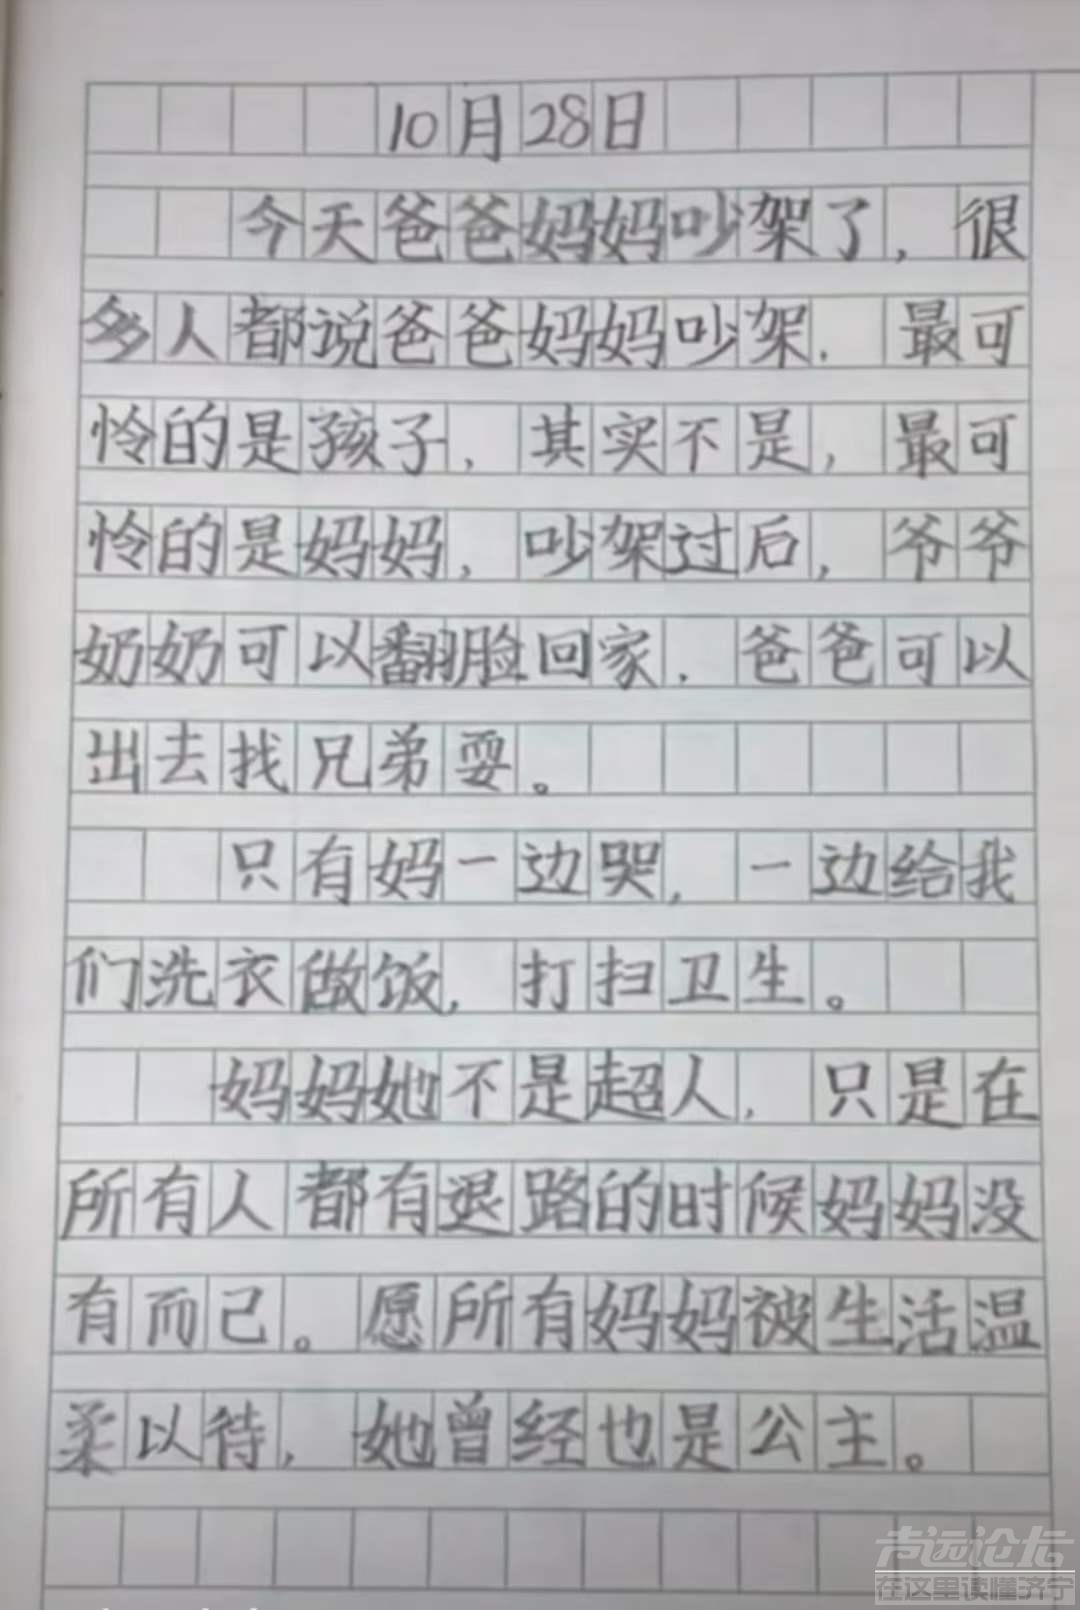 10月28日
今天爸爸妈妈吵架了，很
多人都说爸爸妈妈吵架，最可
怜的是孩子，其实不是，最可
怜的是妈妈，吵架过后，爷爷
奶奶可以翻脸回家，爸爸可以
出去找兄弟耍。
只有妈一边哭，一边给我
们洗衣做饭，打扫卫生。
妈妈她不是超人，只是在
所有人都有退路的时候妈妈没
有而己。愿所有妈妈被生活温
柔以待，她曾经也是公主。
声远论坛
在这里读懂济宁